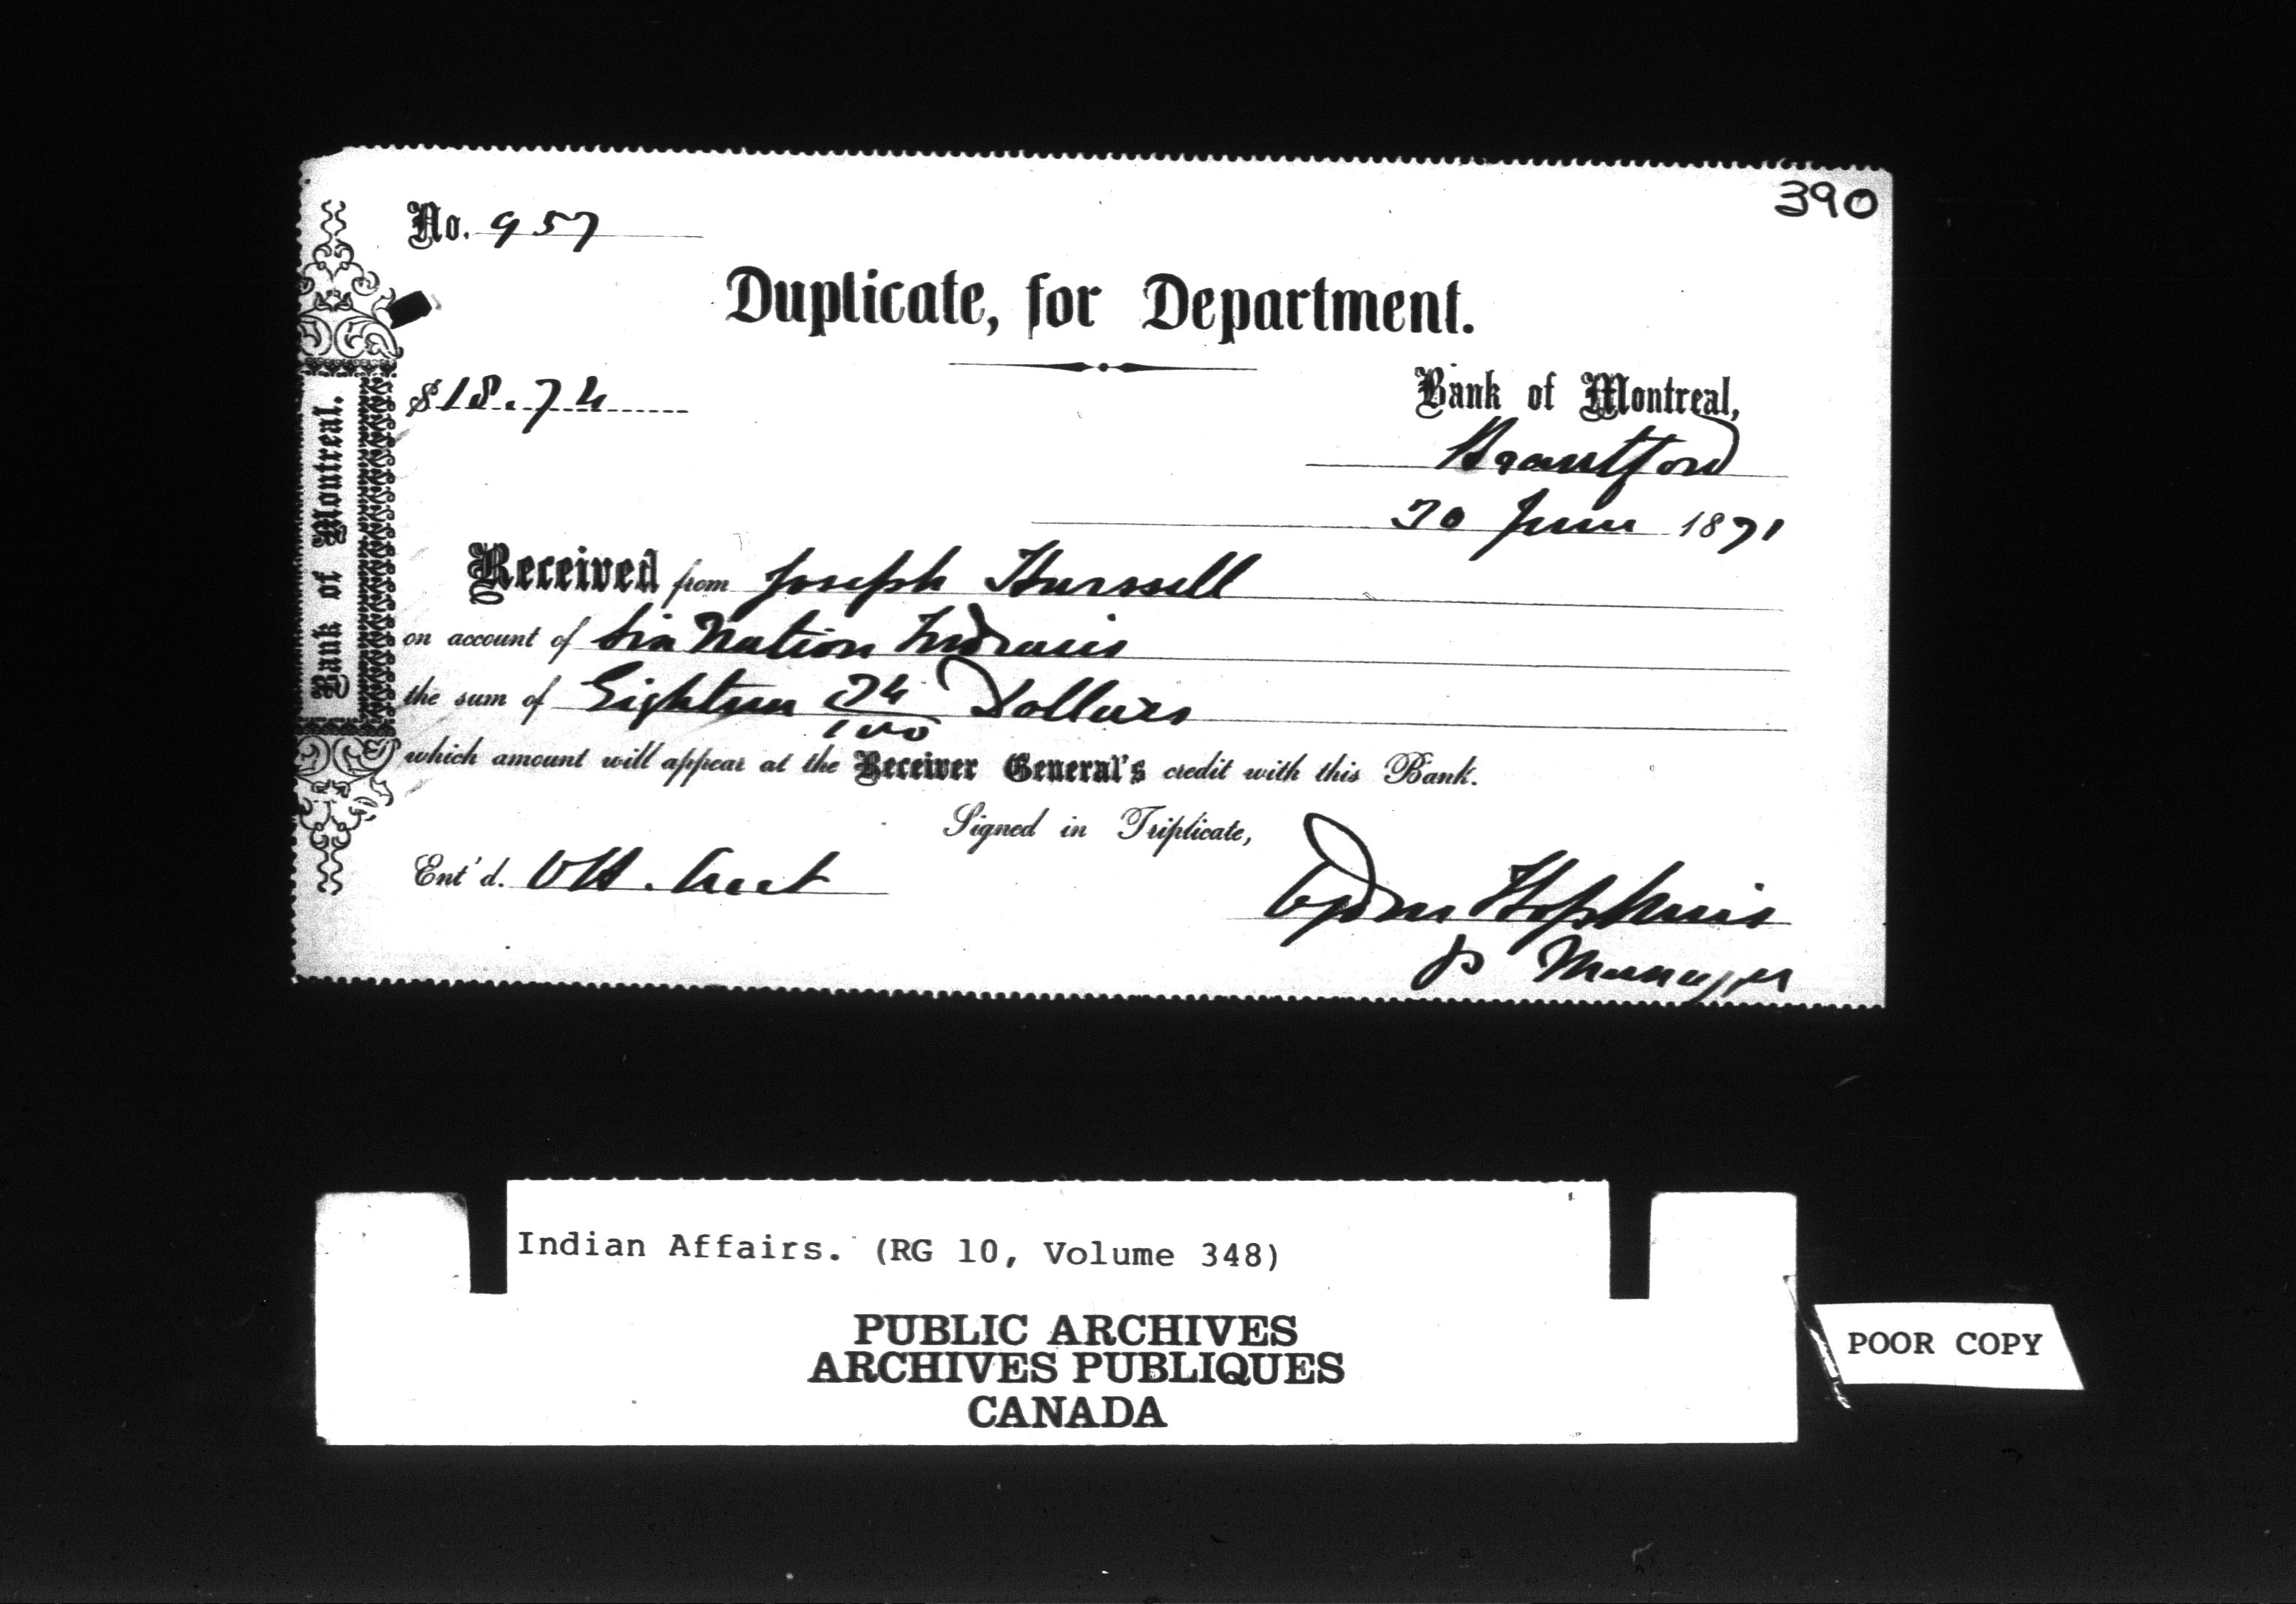 390
No. 957
Duplicate, for Department.
$18.74
Bank of Montreal,
Brantford
30 June 1871
Received from Joseph
on account of Six Nation Indians
the sum of Eighteen 74/100 Dollars
which amount will appear at the Receiver General's credit with this Bank.
Signed in Triplicate,
Ent'd.
Hopkins
p Manager
Bank of Montreal.
Indian Affairs. (RG 10, Volume 348)
PUBLIC ARCHIVES
ARCHIVES PUBLIQUES
CANADA
POOR COPY